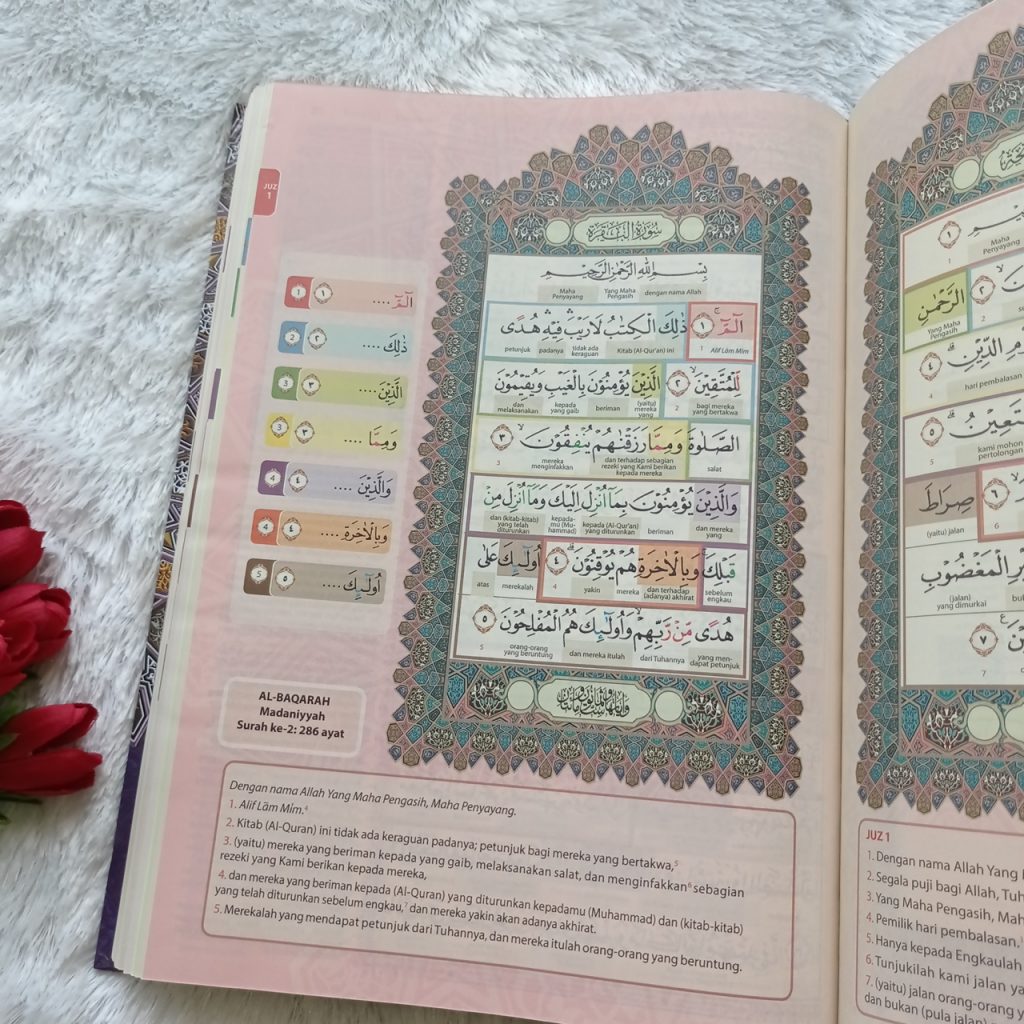 JUZ
1
سورة البقرة
بِسْمِ اللّٰهِ الرَّحْمٰنِ الرَّحِيْمِ
dengan nama Allah
Yang Maha Pengasih
Maha Penyayang
الۤمّۤ ۚ ١ ذٰلِكَ الْكِتٰبُ لَا رَيْبَ ۛ فِيْهِ ۛ هُدًى
1 Alif Lām Mīm
Kitab (Al-Qur'an) ini
tidak ada keraguan
padanya
petunjuk
لِّلْمُتَّقِيْنَ ۙ ٢ الَّذِيْنَ يُؤْمِنُوْنَ بِالْغَيْبِ وَيُقِيْمُوْنَ
bagi mereka yang bertakwa
2
(yaitu) mereka yang
beriman
kepada yang gaib
dan melaksanakan
الصَّلٰوةَ وَمِمَّا رَزَقْنٰهُمْ يُنْفِقُوْنَ ۙ ٣
salat
dan terhadap sebagian rezeki yang Kami berikan kepada mereka
mereka menginfakkan
3
وَالَّذِيْنَ يُؤْمِنُوْنَ بِمَآ اُنْزِلَ اِلَيْكَ وَمَآ اُنْزِلَ مِنْ
dan mereka yang
beriman
kepada (Al-Qur'an) yang diturunkan
kepadamu (Muhammad)
dan (kitab-kitab) yang telah diturunkan
قَبْلِكَ ۚ وَبِالْاٰخِرَةِ هُمْ يُوْقِنُوْنَ ۗ ٤ اُولٰۤىِٕكَ عَلٰى
sebelum engkau
dan terhadap (adanya) akhirat
mereka
yakin
4
merekalah
atas
هُدًى مِّنْ رَّبِّهِمْ ۙ وَاُولٰۤىِٕكَ هُمُ الْمُفْلِحُوْنَ ٥
yang mendapat petunjuk
dari Tuhannya
dan mereka itulah
orang-orang yang beruntung
5
1 ١ الۤمّۤ ....
2 ٢ ذٰلِكَ ....
3 ٣ الَّذِيْنَ ....
3 ٣ وَمِمَّا ....
4 ٤ وَالَّذِيْنَ ....
4 ٤ وَبِالْاٰخِرَةِ ....
5 ٥ اُولٰۤىِٕكَ ....
AL-BAQARAH
Madaniyyah
Surah ke-2: 286 ayat
Dengan nama Allah Yang Maha Pengasih, Maha Penyayang.
1. Alif Lām Mīm.4
2. Kitab (Al-Quran) ini tidak ada keraguan padanya; petunjuk bagi mereka yang bertakwa,5
3. (yaitu) mereka yang beriman kepada yang gaib, melaksanakan salat, dan menginfakkan6 sebagian
rezeki yang Kami berikan kepada mereka,
4. dan mereka yang beriman kepada (Al-Quran) yang diturunkan kepadamu (Muhammad) dan (kitab-kitab)
yang telah diturunkan sebelum engkau,7 dan mereka yakin akan adanya akhirat.
5. Merekalah yang mendapat petunjuk dari Tuhannya, dan mereka itulah orang-orang yang beruntung.
١
Maha Penyayang
1
الرَّحْمٰنِ
٢
Yang Maha Pengasih
2
الدِّيْنِ ۗ ٤
hari pembalasan
4
٥
kami mohon pertolongan
5
صِرَاطَ
٦
(yaitu) jalan
6
الْمَغْضُوْبِ
(jalan) yang dimurkai
٧
7
JUZ 1
1. Dengan nama Allah Yang
2. Segala puji bagi Allah,
3. Yang Maha Pengasih,
4. Pemilik hari pembalasan.
5. Hanya kepada Engkaulah
6. Tunjukilah kami jalan
7. (yaitu) jalan orang-orang
dan bukan (pula jalan)